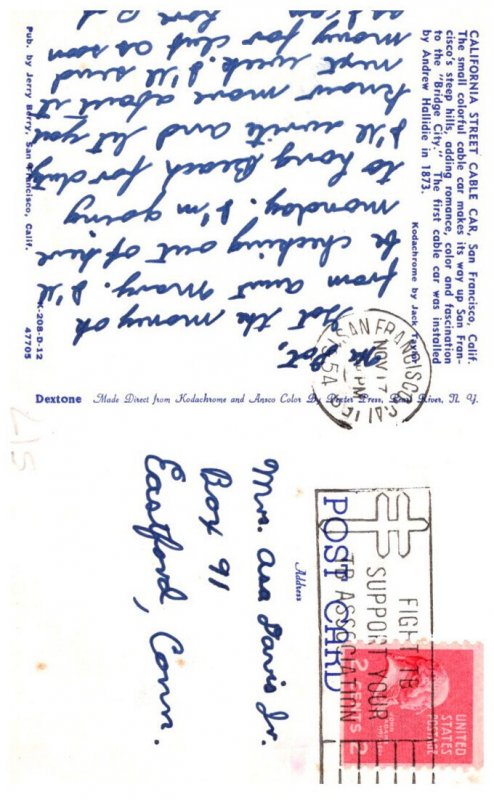 CALIFORNIA STREET CABLE CAR, San Francisco, Calif.
The small colorful cable car makes its way up San Fran-
cisco's steep hills, adding romance, color and fascination
to the "Bridge City." The first cable car was installed
by Andrew Hallidie in 1873.
Kodachrome by Jack
Pub. by Jerry Berry, San Francisco, Calif.
K-208-D-12
47705
Dot,
Got the money ok
from aunt Mary. I'll
be checking out of here
monday. I'm going
to Long Beach for duty
I'll write and let you
know more about it
next week. I'll send
money for
as soon
Dextone Made Direct from Kodachrome and Ansco Color By Dexter Press, Pearl River, N. Y.
SAN FRANCISCO, CALIF.
NOV 17
PM
1954
POST CARD
Address
FIGHT TB
SUPPORT YOUR
TB ASSOCIATION
UNITED
STATES
POSTAGE
JOHN
ADAMS
2 CENTS 2
Mrs. Asa Davis Jr.
Box 91
Eastford, Conn.
215